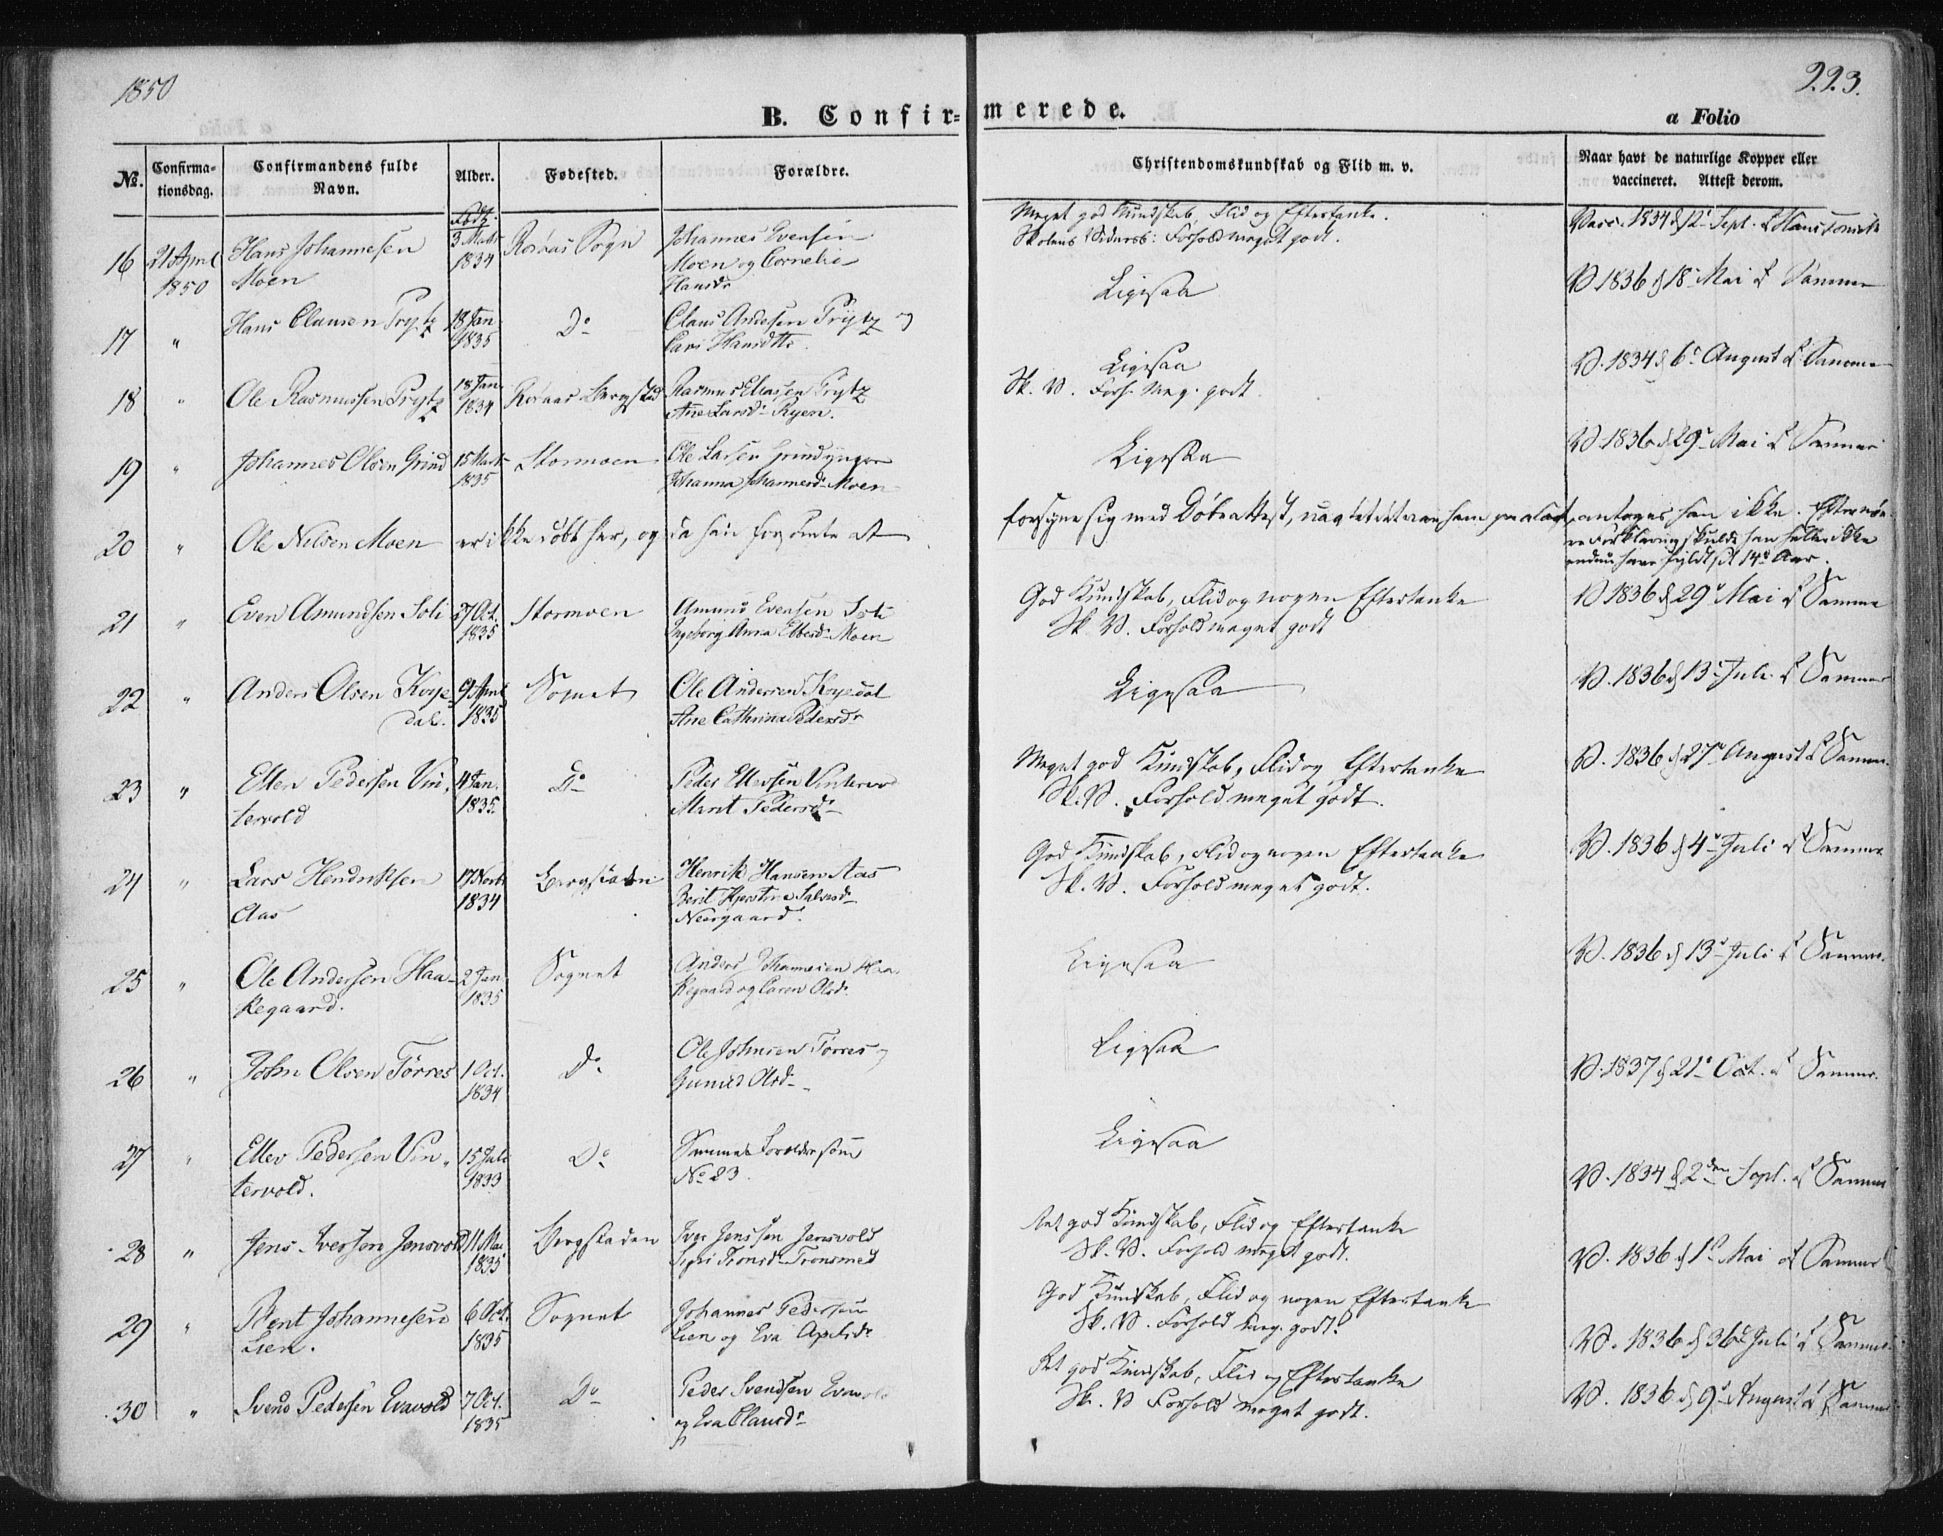 1850
223.
B. Confirmerede.
a Folio
No. Confirmationsdag. Confirmandens fulde Navn. Alder. Fødested. Forældre. Christendomskundskab og Flid m. v. Naar havt de naturlige Kopper eller vaccineret. Attest derom.
Født
16 21 April 1850 Hans Johannesen Moen 3 Marts 1834 Røraas Sogn Johannes Evensen Moen og Cornelie Hansdr Meget god Kundskab, Flid og Eftertanke. Skolens Forhold meget godt. Vacc. 1834 d 12t Sept.
17 " Hans Clausen Prytz 18 Jan 1835 Do Claus Andersen Prytz og Cari Hansdtr Ligesaa V 1836 d 18 Mai af Samme
18 " Ole Rasmussen Prytz 18 Jan. 1834 Røraas Bergstad Rasmus Eliasen Prytz Ane Larsdr Ryen. Ligesaa Sk. V. Forh. Meg. godt. V. 1834 d 6t August af Samme
19 " Johannes Olsen Grind 15 Marts 1835 Stormoen Ole Larsen Johanna Johannesdr Moen Ligesaa V 1836 d 29t Mai af Samme
20 " Ole Nilsen Moen er ikke døbt her, og da han forsømte at forsyne sig med Døbeattest, uagtet det var ham paalagt, antoges han ikke. Efter Forklaring skulde han heller ikke endnu have fyldt sit 14de Aar.
21 " Even Amundsen Soli 27 Oct. 1835 Stormoen Amund Evensen Soli Ingeborg Anna Moen God Kundskab, Flid og nogen Eftertanke Sk. V. Forhold meget godt V 1836 d 29t Mai af Samme
22 " Anders Olsen Kojedal. 9 April 1835 Sognet Ole Andersen Kojedal Ane Cathrina Pedersdr Ligesaa V. 1836 d 13t Juli af Samme
23 " Ellev Pedersen Vintervold 4 Jan. 1835. Do Peder Ellevsen Vintervo Marit Pedersdr Meget god Kundskab, Flid og Eftertanke Sk. V. Forhold meget godt. V. 1836 d 27t August af Samme.
24 " Lars Hendriksen Aas 17 Novb 1834 Bergstaden Henrik Hansen Aas Berit Kjerstine Neergaard. God Kundskab, Flid og nogen Eftertanke Sk. V. Forhold meget godt. V. 1836 d 4t Juli af Samme
25 " Ole Andersen Haakegaard. 2 Jan. 1835 Sognet Anders Johannesen Haakegaard og Caren Olsdr. Ligesaa V. 1836 d 13t Juli af Samme.
26 " John Olsen Tørres 1 Oct. 1834 Do Ole Johnsen Tørres og Gunild Olsd Ligesaa V. 1837 d 21t Oct. af Samme.
27 " Ellev Pedersen Vintervold. 15 Juli 1833 Do Samme Forældre som No 23. Ligesaa V. 1834 d 2den Sept. af Samme
28 " Jens Iversen Jensvold 11 Mai 1835 Bergstaden Iver Jenssen Jensvold Sigri Tronsdr Tronsmed Ret god Kundskab, Flid og Eftertanke Sk. V. Forhold meget godt. V. 1836 d 1t Mai af Samme
29 " Bent Johannesen Lien. 6 Oct. 1835 Sognet Johannes Pedersen Lien og Eva God Kundskab, Flid og nogen Eftertanke Sk. V. Forhold meg. godt. V. 1836 d Juli af Samme.
30 " Svend Pedersen Evavold 7 Oct. 1835 Do Peder Svendsen Evavold og Eva Clausdr Ret god Kundskab, Flid og Eftertanke Sk. V Forhold meget godt. V. 1836 d 9t August af Samme